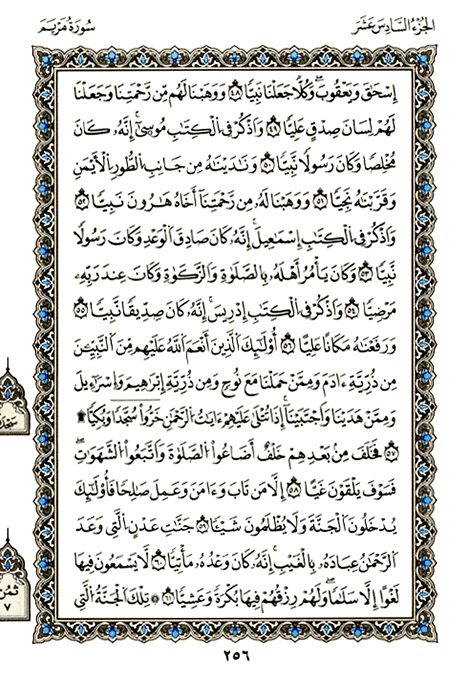 الجزء السادس عشر
سورة مريم
إسحق ويعقوب وكلا جعلنا نبيا ٤٨ ووهبنا لهم من رحمتنا وجعلنا
لهم لسان صدق عليا ٤٩ واذكر في الكتب موسى إنه كان
مخلصا وكان رسولا نبيا ٥٠ وندينه من جانب الطور الأيمن
وقربنه نجيا ٥١ ووهبنا له من رحمتنا أخاه هرون نبيا ٥٢
واذكر في الكتب إسمعيل إنه كان صادق الوعد وكان رسولا
نبيا ٥٣ وكان يأمر أهله بالصلوة والزكوة وكان عند ربه
مرضيا ٥٤ واذكر في الكتب إدريس إنه كان صديقا نبيا ٥٥
ورفعنه مكانا عليا ٥٦ أولئك الذين أنعم الله عليهم من النبيين
من ذرية ءادم وممن حملنا مع نوح ومن ذرية إبرهيم وإسرءيل
وممن هدينا واجتبينا إذا تتلى عليهم ءايت الرحمن خروا سجدا وبكيا ۩
٥٧ فخلف من بعدهم خلف أضاعوا الصلوة واتبعوا الشهوت
فسوف يلقون غيا ٥٨ إلا من تاب وءامن وعمل صلحا فأولئك
يدخلون الجنة ولا يظلمون شيئا ٥٩ جنت عدن التي وعد
الرحمن عباده بالغيب إنه كان وعده مأتيا ٦٠ لا يسمعون فيها
لغوا إلا سلما ولهم رزقهم فيها بكرة وعشيا ٦١ ۞ تلك الجنة التي
سجدة
ثمن
٧
٢٥٦